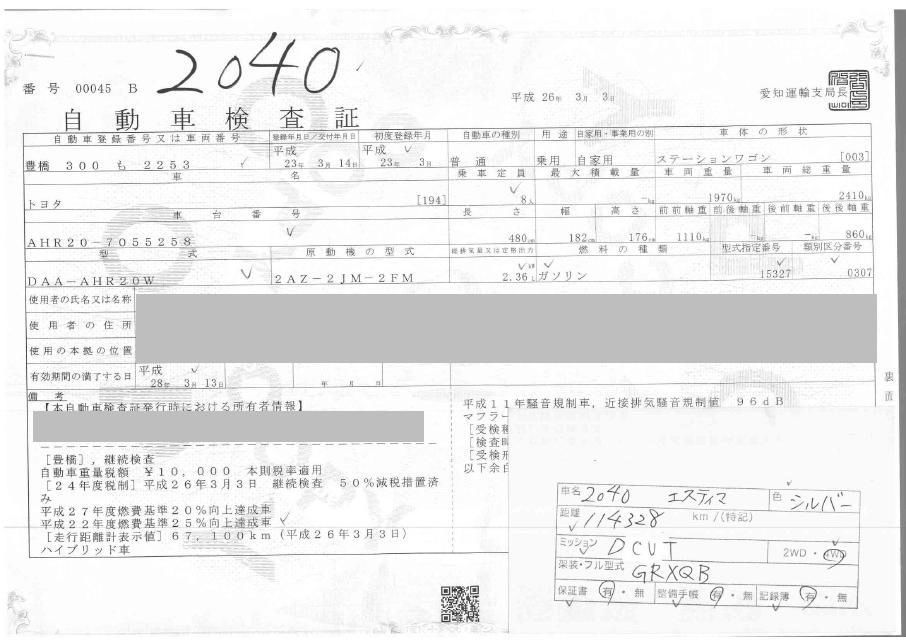 2040
番号 00045 B
平成 26年 3月 3日
愛知運輸支局長
自動車検査証
自動車登録番号又は車両番号 登録年月日/交付年月日 初度登録年月 自動車の種別 用途 自家用・事業用の別 車体の形状
豊橋 300 も 2253 平成 23年 3月 14日 平成 23年 3月 普通 乗用 自家用 ステーションワゴン [003]
車名 乗車定員 最大積載量 車両重量 車両総重量
トヨタ [194] 8人 -kg 1970kg 2410kg
車台番号 長さ 幅 高さ 前前軸重 前後軸重 後前軸重 後後軸重
AHR20-7055258 480cm 182cm 176cm 1110kg -kg -kg 860kg
型式 原動機の型式 総排気量又は定格出力 燃料の種類 型式指定番号 類別区分番号
DAA-AHR20W 2AZ-2JM-2FM kW 2.36L ガソリン 15327 0307
使用者の氏名又は名称
使用者の住所
使用の本拠の位置
有効期間の満了する日 平成 28年 3月 13日 年 月 日
備考
【本自動車検査証発行時における所有者情報】
[豊橋],継続検査
自動車重量税額 ¥10,000 本則税率適用
[24年度税制]平成26年3月3日 継続検査 50%減税措置済
み
平成27年度燃費基準20%向上達成車
平成22年度燃費基準25%向上達成車
[走行距離計表示値]67,100km(平成26年3月3日)
ハイブリッド車
平成11年騒音規制車,近接排気騒音規制値 96dB
マフラー
[受検
[検査時
[受検形
以下余白
裏
面
車名 2040 エスティマ 色 シルバー
距離 114328 km/(特記)
ミッション DCVT 2WD・4WD
架装・フル型式 GRXQB
保証書 有・無 整備手帳 有・無 記録簿 有・無